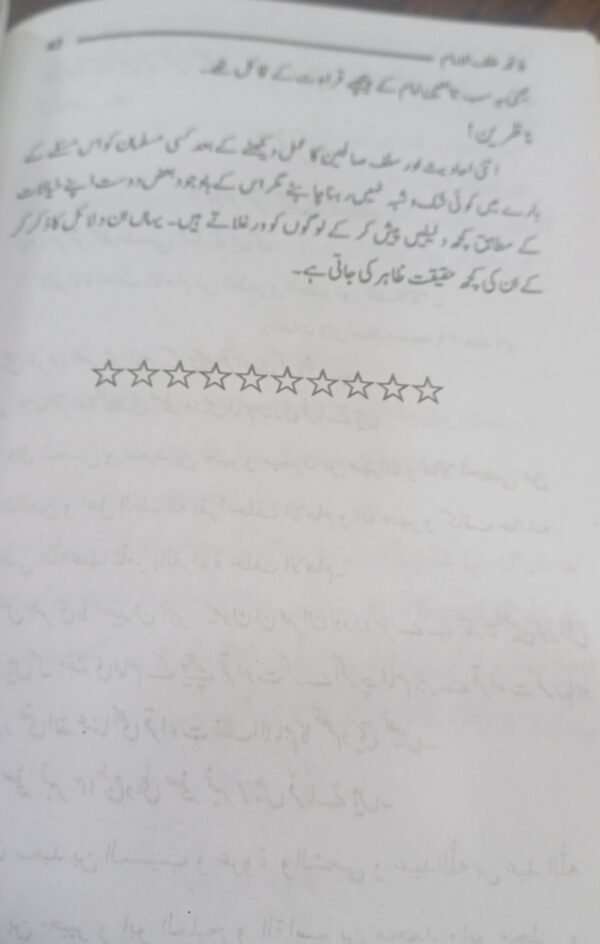 فاتحہ خلف الامام
یعنی یہ سب تابعی امام کے پیچھے قراءت کے قائل تھے۔
ناظرین!
اتنی احادیث اور سلف صالحین کا عمل دیکھنے کے بعد کسی مسلمان کو اس مسئلے کے
بارے میں کوئی شک و شبہ نہیں رہنا چاہئے مگر اس کے باوجود بعض دوست اپنے خیالات
کے مطابق کچھ دلیلیں پیش کر کے لوگوں کو ورغلاتے ہیں۔ یہاں ان دلائل کا ذکر کر
کے ان کی کچھ حقیقت ظاہر کی جاتی ہے۔
☆☆☆☆☆☆☆☆☆☆